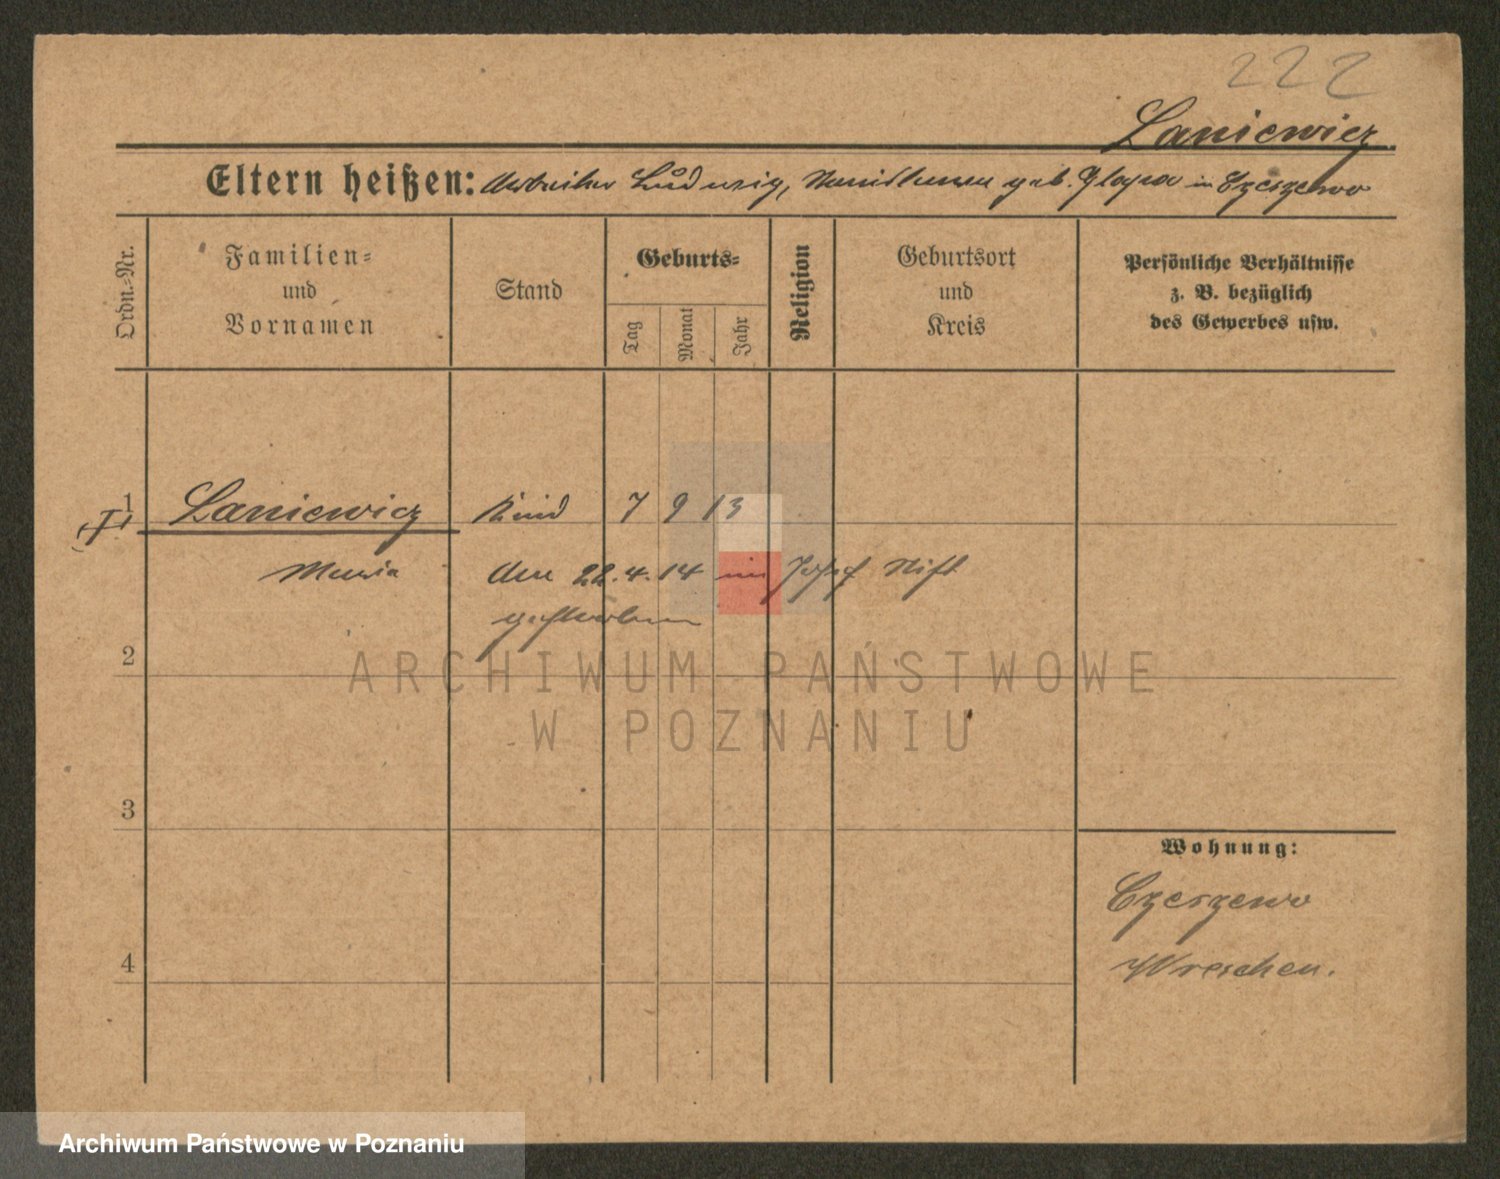 222
Laniewicz.
Eltern heißen: Arbeiter Ludwig, geb. Glapa in Czeszewo
Ordn.-Nr.
Familien-
und
Vornamen
Stand
Geburts-
Tag
Monat
Jahr
Religion
Geburtsort
und
Kreis
Persönliche Verhältnisse
z. B. bezüglich
des Gewerbes usw.
1 Laniewicz Kind 7 9 13
Maria den 22.4.14 im Josef Stift
gestorben
2
ARCHIWUM PAŃSTWOWE
W POZNANIU
3
Wohnung:
Czeszewo
4
Wreschen.
Archiwum Państwowe w Poznaniu